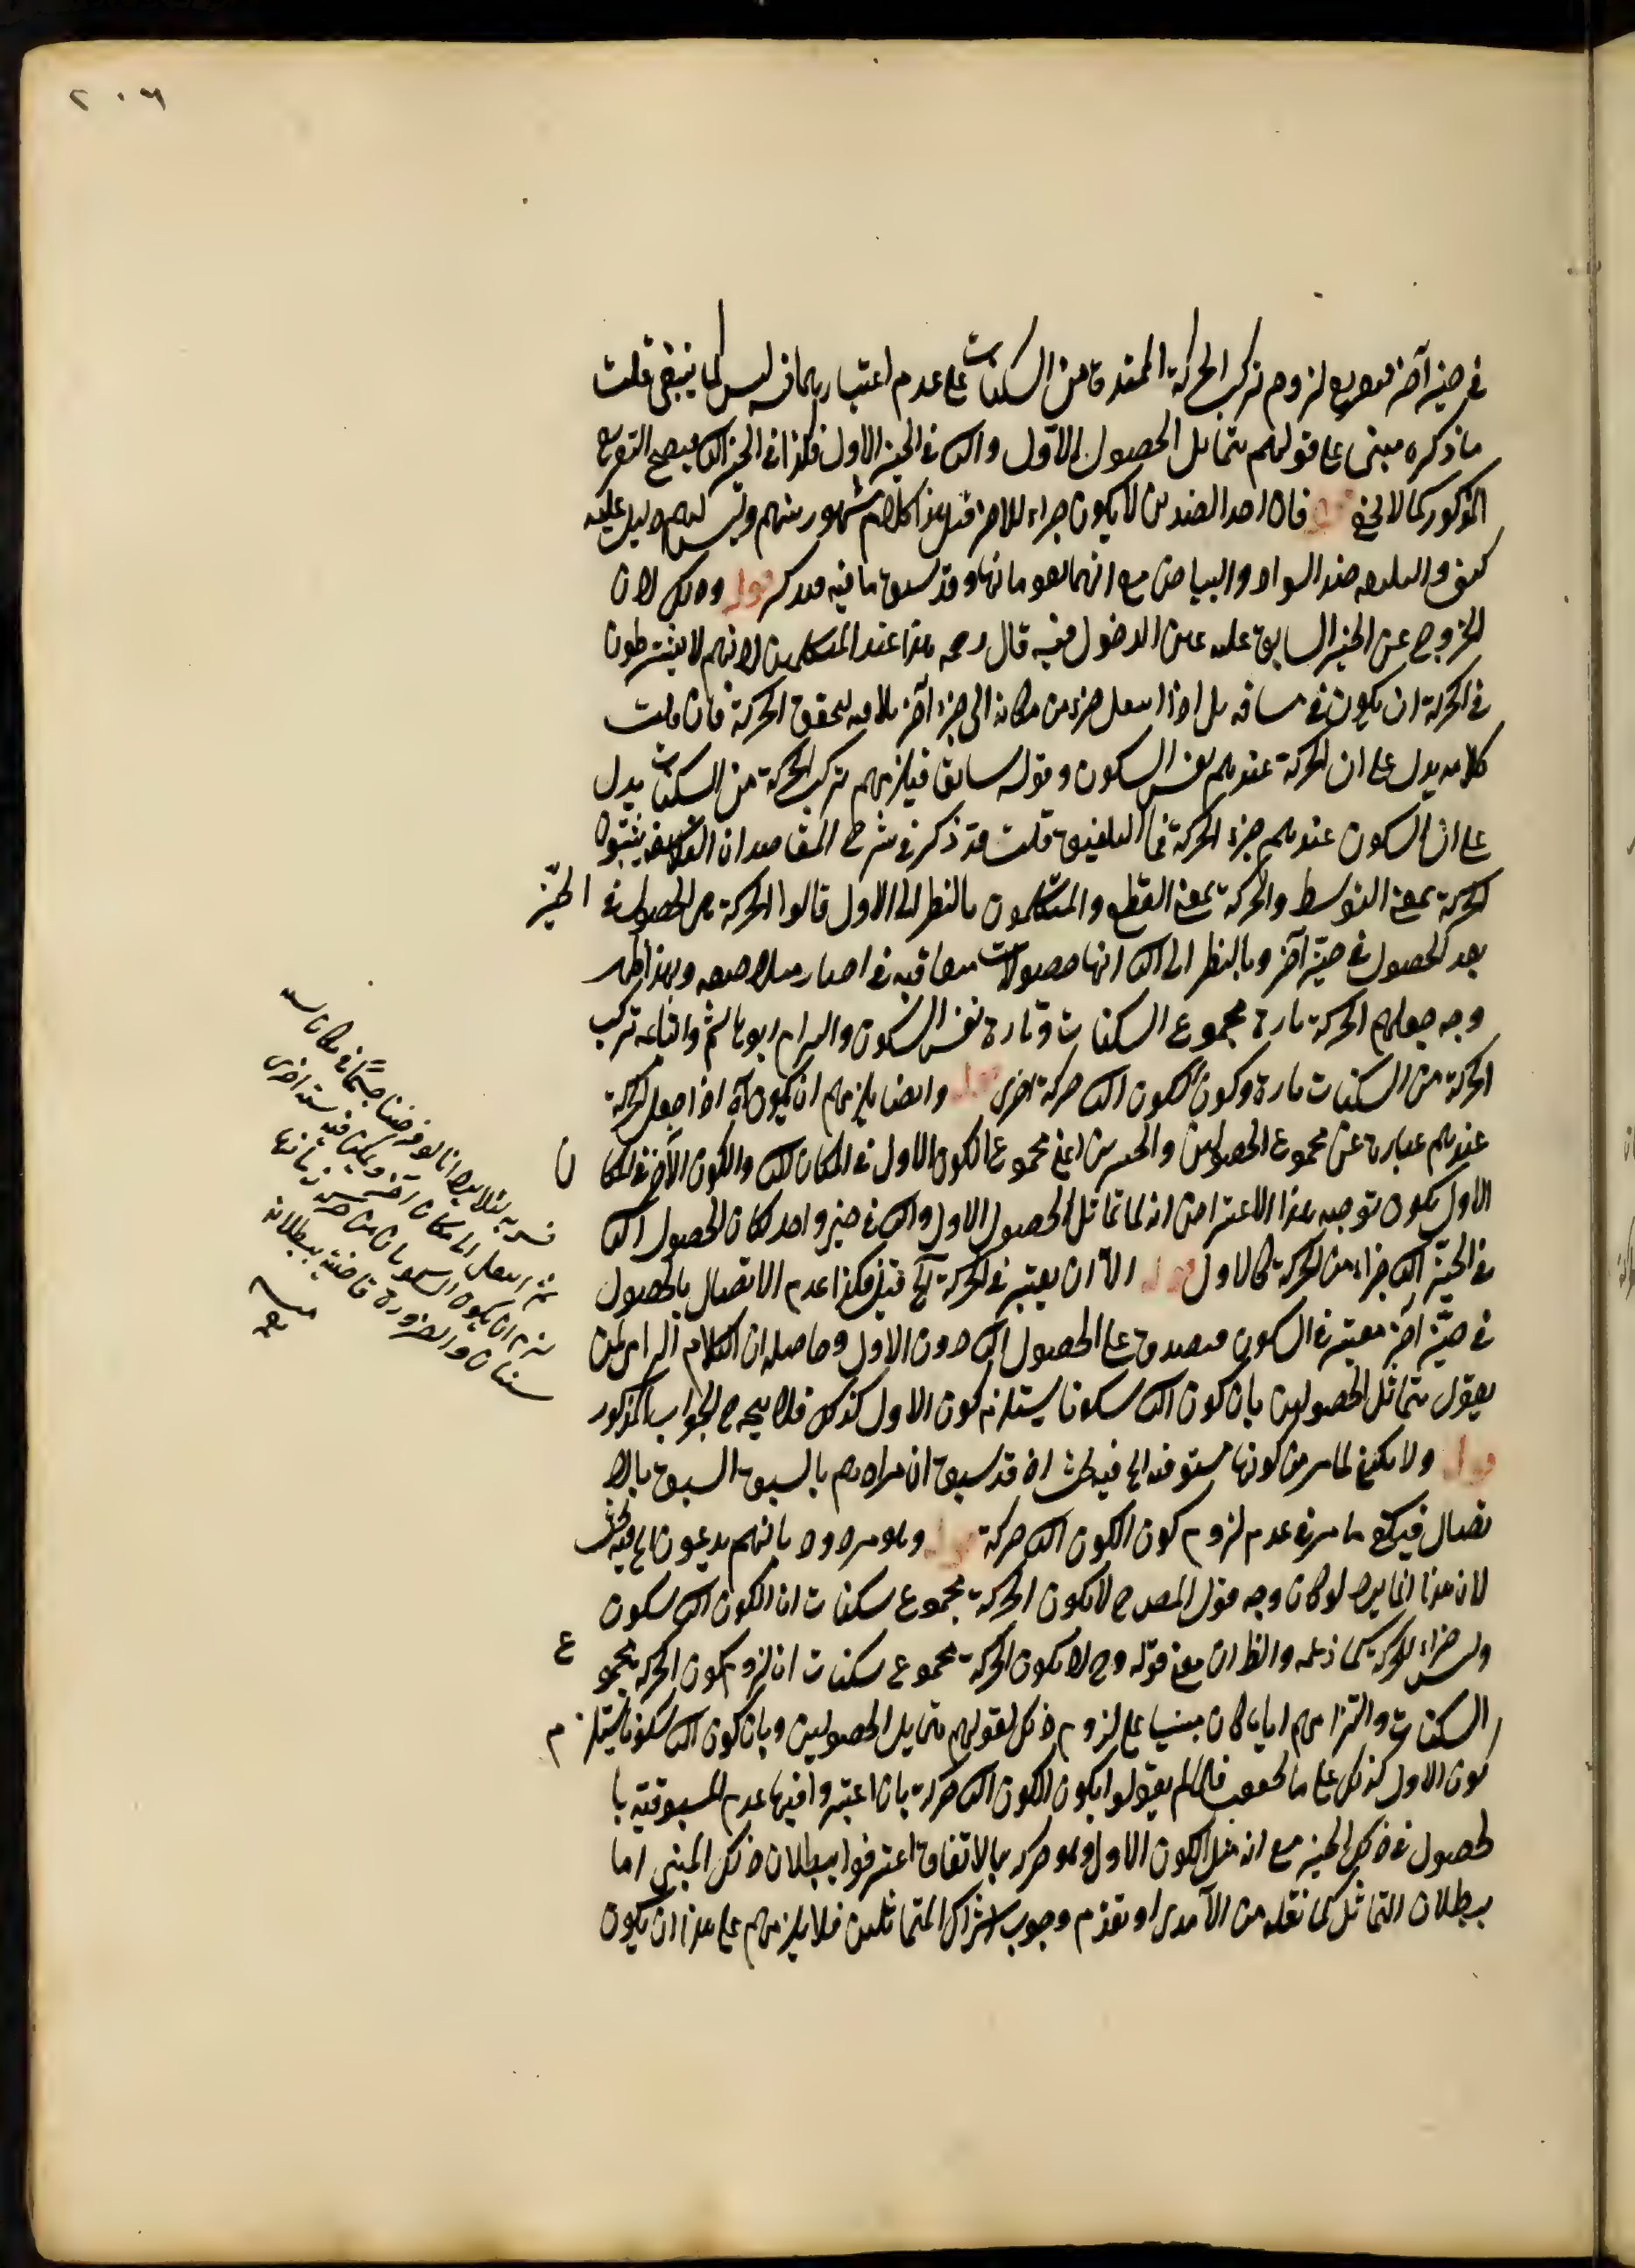 ٢٠٦
في حيز آخر لزوم تركب الحركة الممتدة من السكنات على عدم اعتبارهما فيه ليس كما ينبغي قلت
ما ذكره مبني على قولهم بتماثل الحصول الأول والثاني في الحيز الأول فكذا في الحيز الثاني فيصح التفريع
المذكور كما لا يخفى قوله فان احد الضدين لا يكون جزاء للاخر قيل هذا كلام مشهور منهم وليس لهم دليل عليه
كيف والبلقة ضد السواد والبياض مع انهما يقومانها وقد سبق ما فيه فتذكر قوله وذلك لان
الخروج عن الحيز السابق عليه عين الدخول فيه قال رحمه هذا عند المتكلمين لانهم لا يشترطون
في الحركة ان يكون في مسافة بل اذا انتقل جزء من مكانه الى جزء آخر يلاقيه تحقق الحركة فان قلت
كلامه يدل على ان الحركة عندهم نفس السكون وقوله سابقا فيلزمهم تركب الحركة من السكنات يدل
على ان السكون عندهم جزء الحركة فما التلفيق قلت قد ذكر في شرح المقاصد ان الفلاسفة يثبتون
الحركة بمعنى التوسط والحركة بمعنى القطع والمتكلمون بالنظر الى الاول قالوا الحركة هي الحصول في الحيّز
بعد الحصول في حيّز آخر وبالنظر الى الثاني انها حصولات متعاقبة في احياز متلاصقة وبهذا ظهر
وجه جعلهم الحركة تارة مجموع السكنات وتارة نفس السكون والتزام ابو هاشم واتباعه تركب
الحركة من السكنات تارة وكون السكون الثاني حركة اخرى قوله وايضا يلزمهم ان يكون آه اذا جعل الحركة
عندهم عبارة عن مجموع الحصولين والحيزين اعني مجموع الكون الاول في المكان الثاني والكون الآخر في المكان
الاول يكون توجيه هذا الاعتراض انه لما تماثل الحصول الاول والثاني في حيز واحد كان الحصول الثاني
في الحيّز الثاني جزاء من الحركة كالاول قوله الا ان يعتبر في الحركة الخ قيل فكذا عدم الاتصال بالحصول
في حيّز آخر معتبر في السكون فيصدق على الحصول الثاني دون الاول وحاصله ان الكلام الزامي لمن
يقول بتماثل الحصولين بان كون الثاني سكونا يستلزم كون الاول كذلك فلا يتجه ح الجواب المذكور
قوله ولا يكفي لما مر من كونها مسبوقة الخ فيه بحث اذ قد سبق ان مرادهم بالسبق السبق بالا
تصال فيكفي ما مر في عدم لزوم كون الكون الثاني حركة قوله وهو مردود بانهم يدعون الخ فيه بحث
لان هذا انما يرد لو كان وجه قول المص ح لا يكون الحركة مجموع سكنات ان الكون الثاني سكون
وليس جزاء للحركة كما زعمه والظ ان معنى قوله وح لا يكون الحركة مجموع سكنات ان لزوم كون الحركة مجموع
السكنات والتزامهم اياه كان مبنيا على لزوم ذلك لقولهم بتماثل الحصولين وبان كون الثاني سكونا يستلزم
كون الاول كذلك على ما فلما لم يقولوا بكون الكون الثاني حركة بان اعتبروا فيها عدم المسبوقية با
لحصول في ذلك الحيز مع انه مثل الكون الاول وهو حركة بالاتفاق اعترفوا ببطلان ذلك المبني اما
ببطلان التماثل كما نقله من الآمدي او بعدم وجوب اشتراك المتماثلين فلا يلزمهم على هذا ان يكون
انا لو فرضنا جسما في مكان
ثم انتقل الى مكان آخر ويكن فيه سنة اخرى
لزم ان يكون السكونان من
سنتان والضرورة قاضية ببطلانه
منه